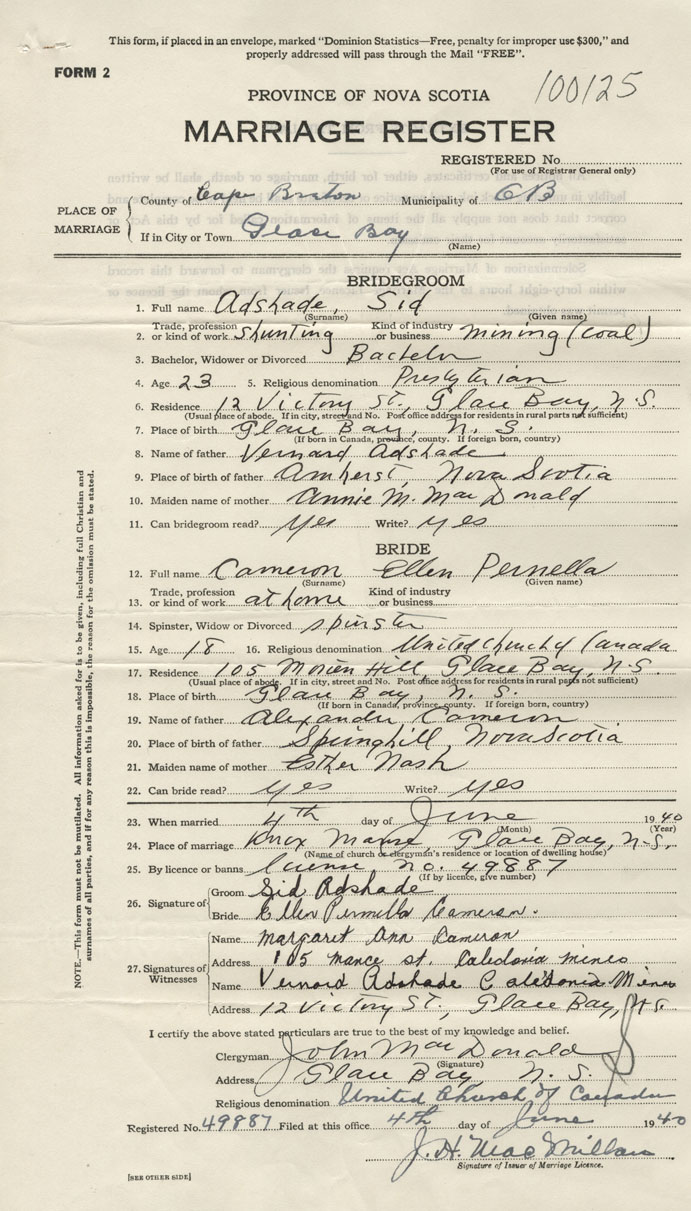 This form, if placed in an envelope, marked "Dominion Statistics—Free, penalty for improper use $300," and
properly addressed will pass through the Mail "FREE".
FORM 2
100125
PROVINCE OF NOVA SCOTIA
MARRIAGE REGISTER
REGISTERED No.
(For use of Registrar General only)
PLACE OF MARRIAGE
County of Cape Breton Municipality of CB
If in City or Town Glace Bay
(Name)
BRIDEGROOM
1. Full name Adshade, Sid
(Surname) (Given name)
2. Trade, profession or kind of work shunting Kind of industry or business mining (coal)
3. Bachelor, Widower or Divorced Bachelor
4. Age 23 5. Religious denomination Presbyterian
6. Residence 12 Victory St., Glace Bay, N.S.
(Usual place of abode. If in city, street and No. Post office address for residents in rural parts not sufficient)
7. Place of birth Glace Bay, N. S.
(If born in Canada, province, county. If foreign born, country)
8. Name of father Vernard Adshade
9. Place of birth of father Amherst, Nova Scotia
10. Maiden name of mother Annie M. MacDonald
11. Can bridegroom read? yes Write? yes
BRIDE
12. Full name Cameron Ellen Pernella
(Surname) (Given name)
13. Trade, profession or kind of work at home Kind of industry or business
14. Spinster, Widow or Divorced spinster
15. Age 18 16. Religious denomination United Church of Canada
17. Residence 105 Morien Hill Glace Bay, N.S.
(Usual place of abode. If in city, street and No. Post office address for residents in rural parts not sufficient)
18. Place of birth Glace Bay, N. S.
(If born in Canada, province, county. If foreign born, country)
19. Name of father Alexander Cameron
20. Place of birth of father Springhill, Nova Scotia
21. Maiden name of mother Esther Nash
22. Can bride read? yes Write? yes
23. When married 4th day of June 1940
(Month) (Year)
24. Place of marriage Knox Manse, Glace Bay, N.S.
(Name of church or clergyman's residence or location of dwelling house)
25. By licence or banns license No. 49887
(If by licence, give number)
26. Signature of
Groom Sid Adshade
Bride Ellen Pernella Cameron.
27. Signatures of Witnesses
Name Margaret Ann Cameron
Address 105 mance st. Caledonia mines
Name Vernard Adshade Caledonia Mines
Address 12 Victory St., Glace Bay, N.S.
I certify the above stated particulars are true to the best of my knowledge and belief.
Clergyman John MacDonald
(Signature)
Address Glace Bay N. S.
Religious denomination United Church of Canada
Registered No. 49887 Filed at this office 4th day of June 1940
J. H. MacMillan
Signature of Issuer of Marriage Licence.
[SEE OTHER SIDE]
NOTE.—This form must not be mutilated. All information asked for is to be given, including full Christian and
surnames of all parties, and if for any reason this is impossible, the reason for the omission must be stated.